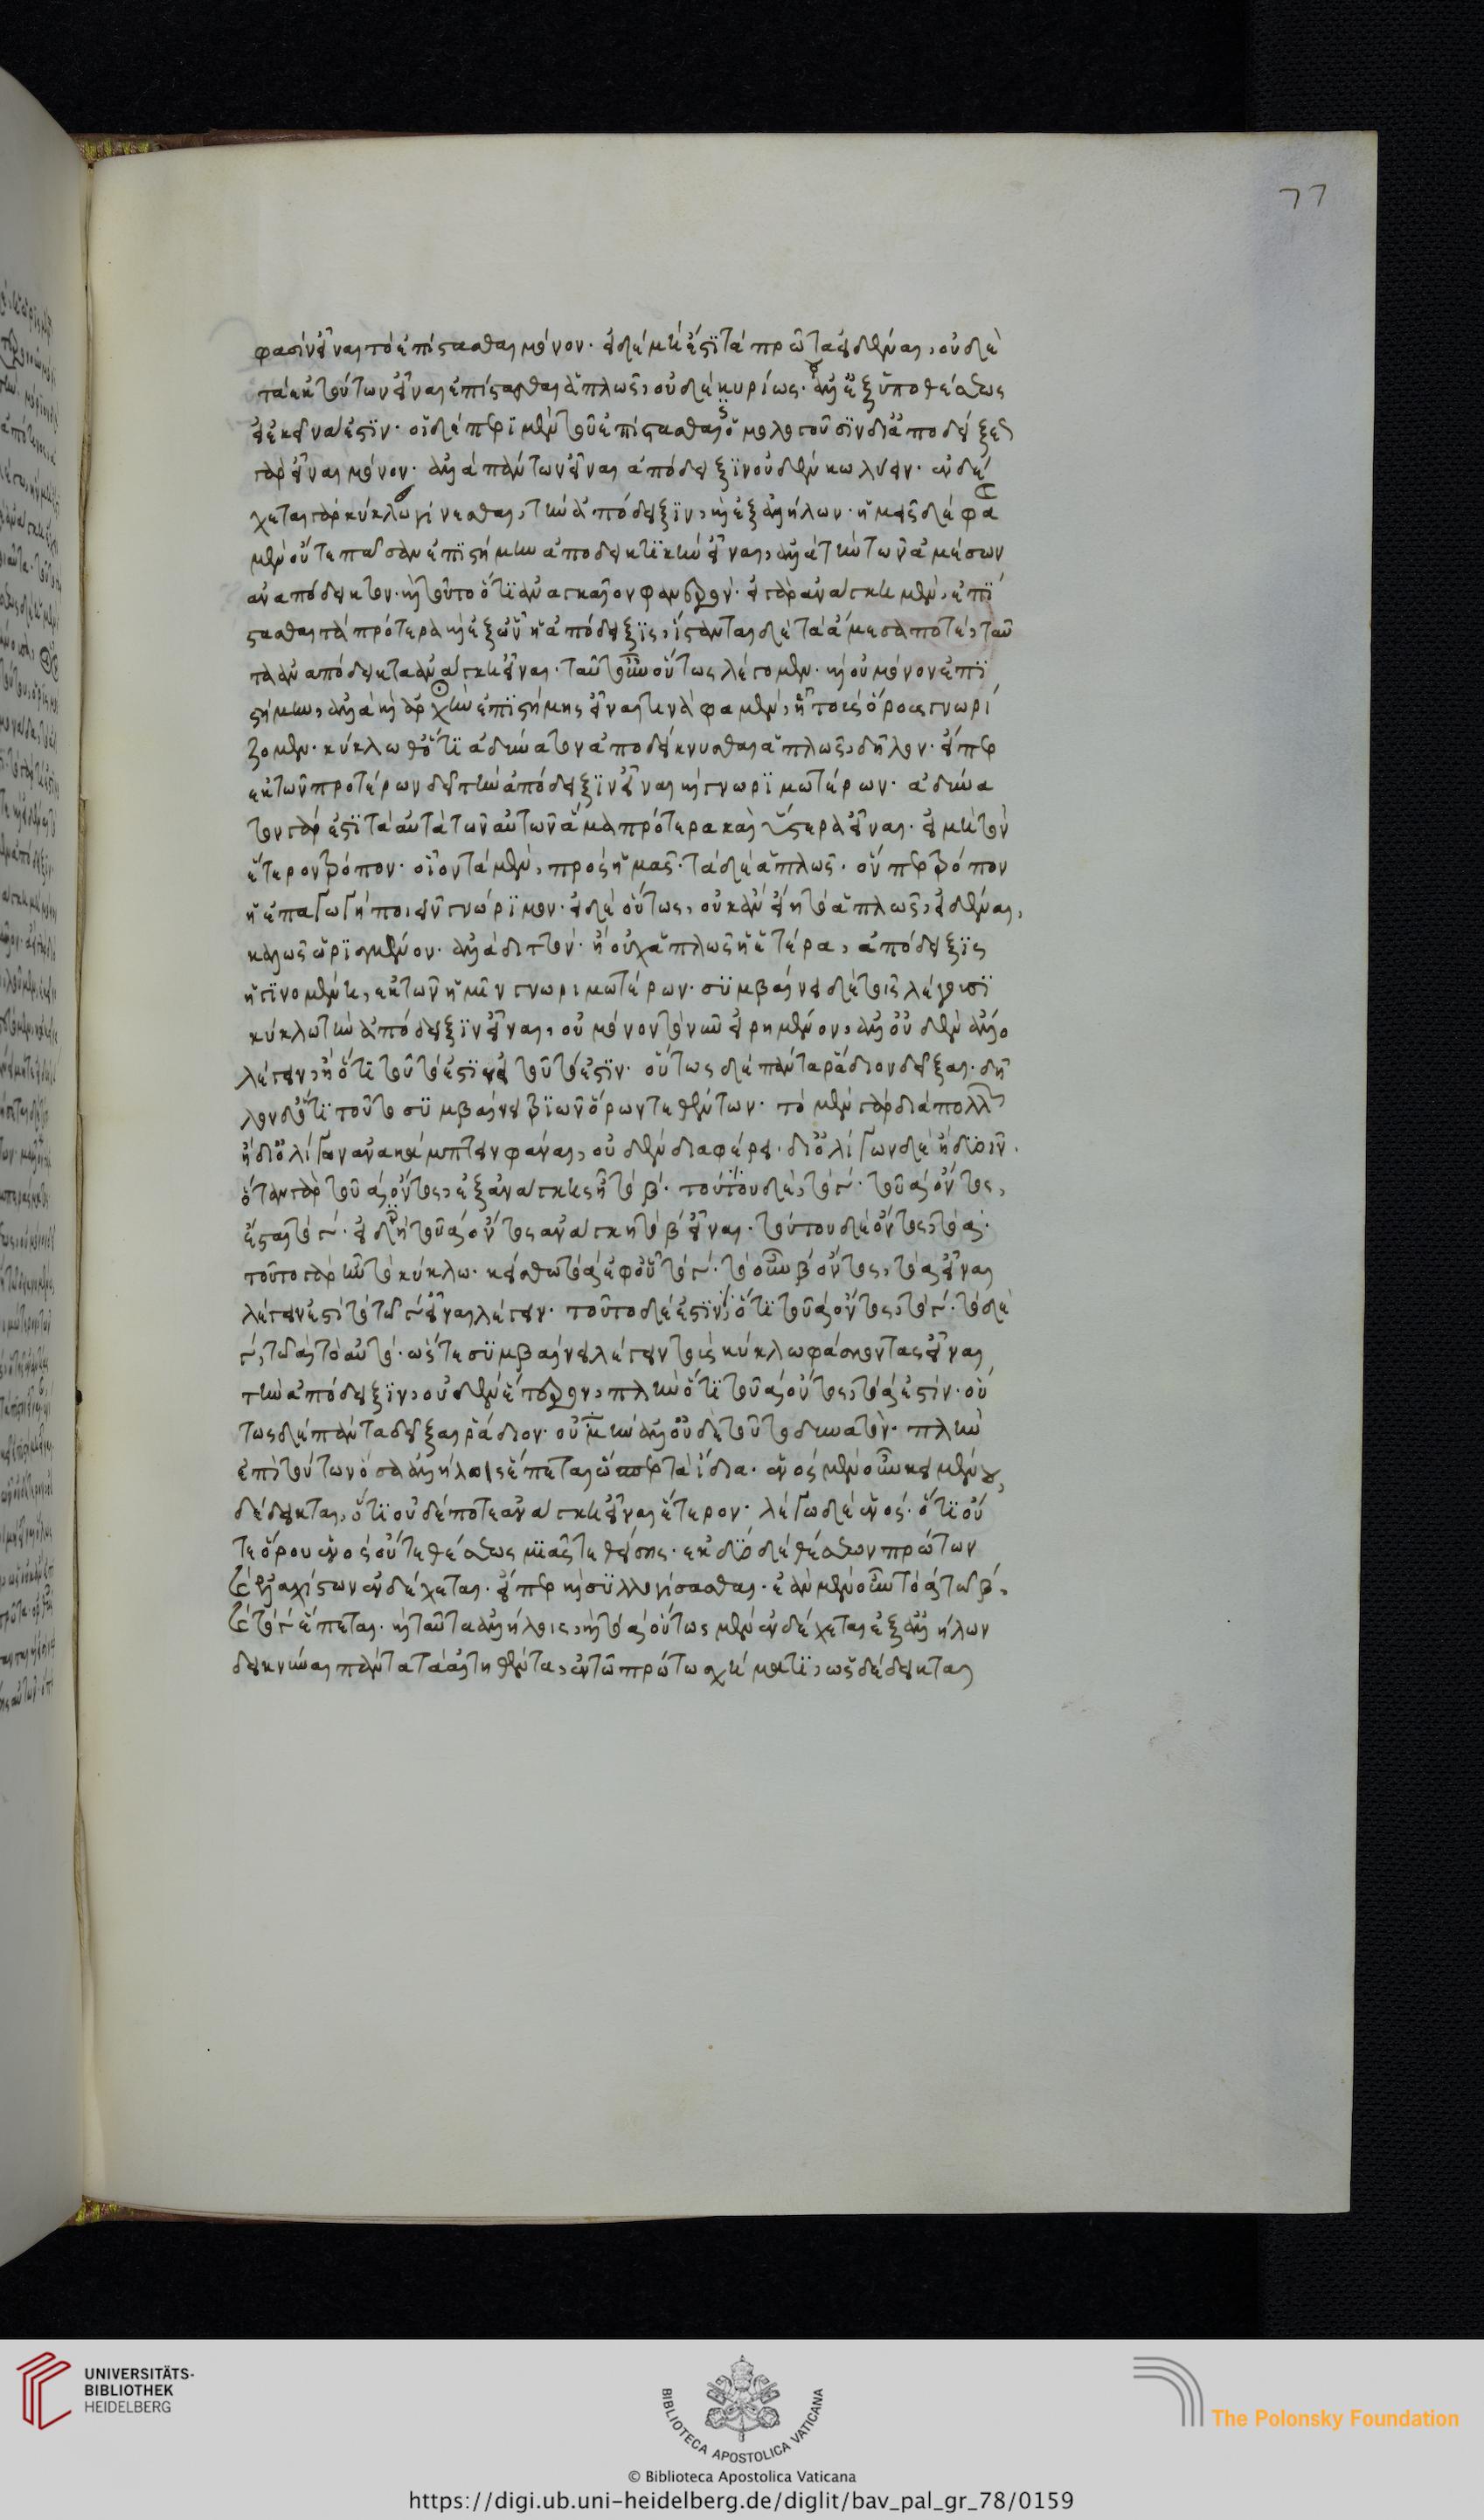 φασὶν εἶναι τὸ ἐπίστασθαι μόνον· εἰ δὲ μή ἐστι τὰ πρῶτα εἰδέναι, οὐδὲ
τὰ ἐκ τούτων εἶναι ἐπίστασθαι ἁπλῶς, οὐδὲ κυρίως· ἀλλ' ἐξ ὑποθέσεως
εἰ ἐκεῖνα ἐστιν· οἱ δὲ περὶ μὲν τοῦ ἐπίστασθαι ὁμολογοῦσιν δι' ἀποδείξεως
γὰρ εἶναι μόνον· ἀλλὰ πάντων εἶναι ἀπόδειξιν οὐδὲν κωλύειν· ἐνδέ
χεται γὰρ κύκλῳ γίνεσθαι τὴν ἀπόδειξιν, καὶ ἐξ ἀλλήλων· ἡμεῖς δέ φα
μεν οὔτε πᾶσαν ἐπιστήμην ἀποδεικτικὴν εἶναι, ἀλλὰ τὴν τῶν ἀμέσων
ἀναπόδεικτον· καὶ τοῦτο ὅτι ἀναγκαῖον φανερόν· εἰ γὰρ ἀνάγκη μὲν, ἐπί
στασθαι τὰ πρότερα καὶ ἐξ ὧν ἡ ἀπόδειξις, ἵσταται δὲ τὰ ἄμεσά ποτε, ταῦ
τα ἀναπόδεικτα ἀνάγκη εἶναι· ταῦτ' οὖν οὕτως λέγομεν· καὶ οὐ μόνον ἐπι
στήμην, ἀλλὰ καὶ ἀρχὴν ἐπιστήμης εἶναι τινά φαμεν, ᾗ τοὺς ὅρους γνωρί
ζομεν· κύκλῳ θ' ὅτι ἀδύνατον ἀποδείκνυσθαι ἁπλῶς, δῆλον· εἴπερ
ἐκ τῶν προτέρων δεῖ τὴν ἀπόδειξιν εἶναι καὶ γνωριμωτέρων· ἀδύνα
τον γάρ ἐστι τὰ αὐτὰ τῶν αὐτῶν ἅμα πρότερα καὶ ὕστερα εἶναι· εἰ μὴ τὸν
ἕτερον τρόπον· οἷον τὰ μὲν, πρὸς ἡμᾶς· τὰ δὲ ἁπλῶς· ὅνπερ τρόπον
ἡ ἐπαγωγὴ ποιεῖ γνώριμον· εἰ δὲ οὕτως, οὐκ ἂν εἴη τὸ ἁπλῶς, εἰδέναι,
καλῶς ὡρισμένον· ἀλλὰ διττόν· ἢ οὐχ ἁπλῶς ἡ ἑτέρα, ἀπόδειξις
ἡ γινομένη, ἐκ τῶν ἡμῖν γνωριμωτέρων· συμβαίνει δὲ τοῖς λέγουσι
κύκλῳ τὴν ἀπόδειξιν εἶναι, οὐ μόνον τὸ νῦν εἰρημένον, ἀλλ' οὐδὲν ἄλλο
λέγειν, ἢ ὅτι τοῦτ' ἔστιν εἰ τοῦτ' ἔστιν· οὕτως δὲ πάντα ῥᾴδιον δεῖξαι· δῆ
λον δ' ὅτι τοῦτο συμβαίνει τριῶν ὅρων τεθέντων· τὸ μὲν γὰρ διὰ πολλῶν
ἢ δι' ὀλίγων ἀνακάμπτειν φάναι, οὐδὲν διαφέρει· δι' ὀλίγων δὲ ἢ δυοῖν·
ὅταν γὰρ τοῦ α ὄντος, ἐξ ἀνάγκης ᾖ τὸ β· τούτου δὲ, τὸ γ· τοῦ α ὄντος,
ἔσται τὸ γ· εἰ δὴ τοῦ α ὄντος ἀνάγκη τὸ β εἶναι· τούτου δὲ ὄντος, τὸ α·
τοῦτο γὰρ ἦν τὸ κύκλῳ· κείσθω τὸ α ἐφ' οὗ τὸ γ· τὸ οὖν β ὄντος, τὸ α εἶναι
λέγειν ἐστὶ τὸ τὸ γ εἶναι λέγειν· τοῦτο δέ ἐστιν, ὅτι τοῦ α ὄντος, τὸ γ· τὸ δὲ
γ, τῷ α τὸ αὐτό· ὥστε συμβαίνει λέγειν τοὺς κύκλῳ φάσκοντας εἶναι
τὴν ἀπόδειξιν, οὐδὲν ἕτερον, πλὴν ὅτι τοῦ α ὄντος, τὸ α ἐστίν· οὕ
τως δὲ πάντα δεῖξαι ῥᾴδιον· οὐ μὴν ἀλλ' οὐδὲ τοῦτο δυνατόν· πλὴν
ἐπὶ τούτων ὅσα ἀλλήλοις ἕπεται ὥσπερ τὰ ἴδια· ἑνὸς μὲν οὖν κειμένου,
δέδεικται, ὅτι οὐδέποτε ἀνάγκη εἶναι ἕτερον· λέγω δὲ ἑνός· ὅτι οὔ
τε ὅρου ἑνὸς οὔτε θέσεως μιᾶς τεθείσης· ἐκ δύο δὲ θέσεων πρώτων
καὶ ἐλαχίστων ἐνδέχεται· εἴπερ καὶ συλλογίσασθαι· ἐὰν μὲν οὖν τὸ α τῷ β,
καὶ τῷ γ ἕπεται· καὶ ταῦτα ἀλλήλοις, καὶ τῷ α οὕτως μὲν ἐνδέχεται ἐξ ἀλλήλων
δεικνύναι πάντα τὰ αἰτηθέντα, ἐν τῷ πρώτῳ σχήματι, ὡς δέδεικται
77
UNIVERSITÄTS-
BIBLIOTHEK
HEIDELBERG
BIBLIOTECA APOSTOLICA VATICANA
© Biblioteca Apostolica Vaticana
The Polonsky Foundation
https://digi.ub.uni-heidelberg.de/diglit/bav_pal_gr_78/0159